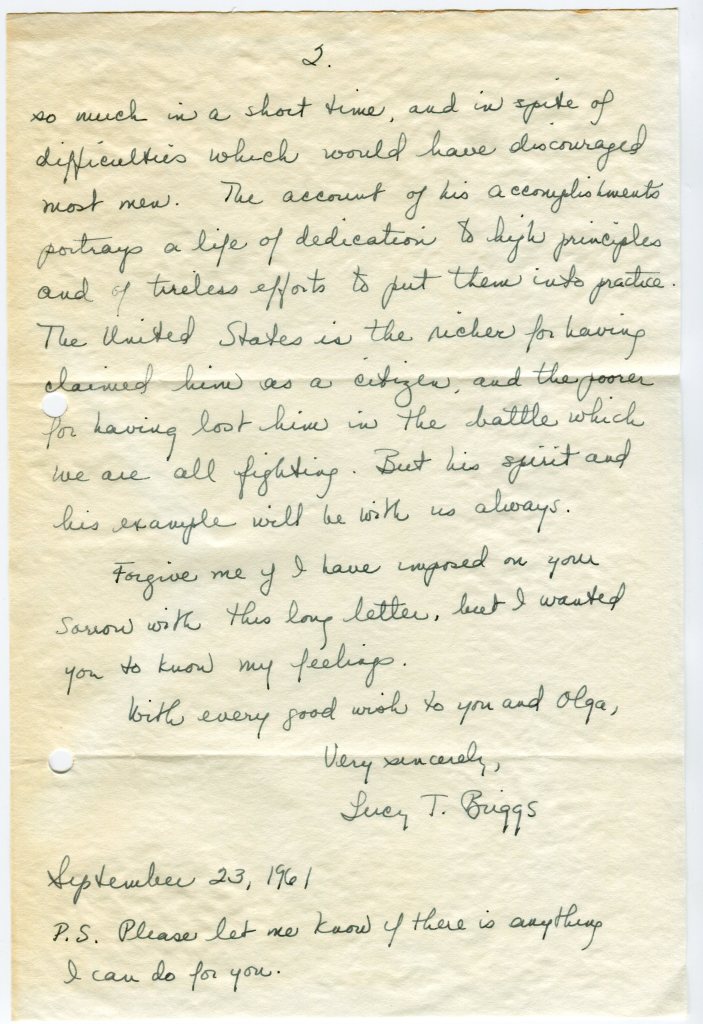 2.
so much in a short time, and in spite of
difficulties which would have discouraged
most men. The account of his accomplishments
portrays a life of dedication to high principles
and of tireless efforts to put them into practice.
The United States is the richer for having
claimed him as a citizen, and the poorer
for having lost him in the battle which
we are all fighting. But his spirit and
his example will be with us always.
Forgive me if I have imposed on your
sorrow with this long letter, but I wanted
you to know my feelings.
With every good wish to you and Olga,
Very sincerely,
Lucy T. Briggs
September 23, 1961
P.S. Please let me know if there is anything
I can do for you.